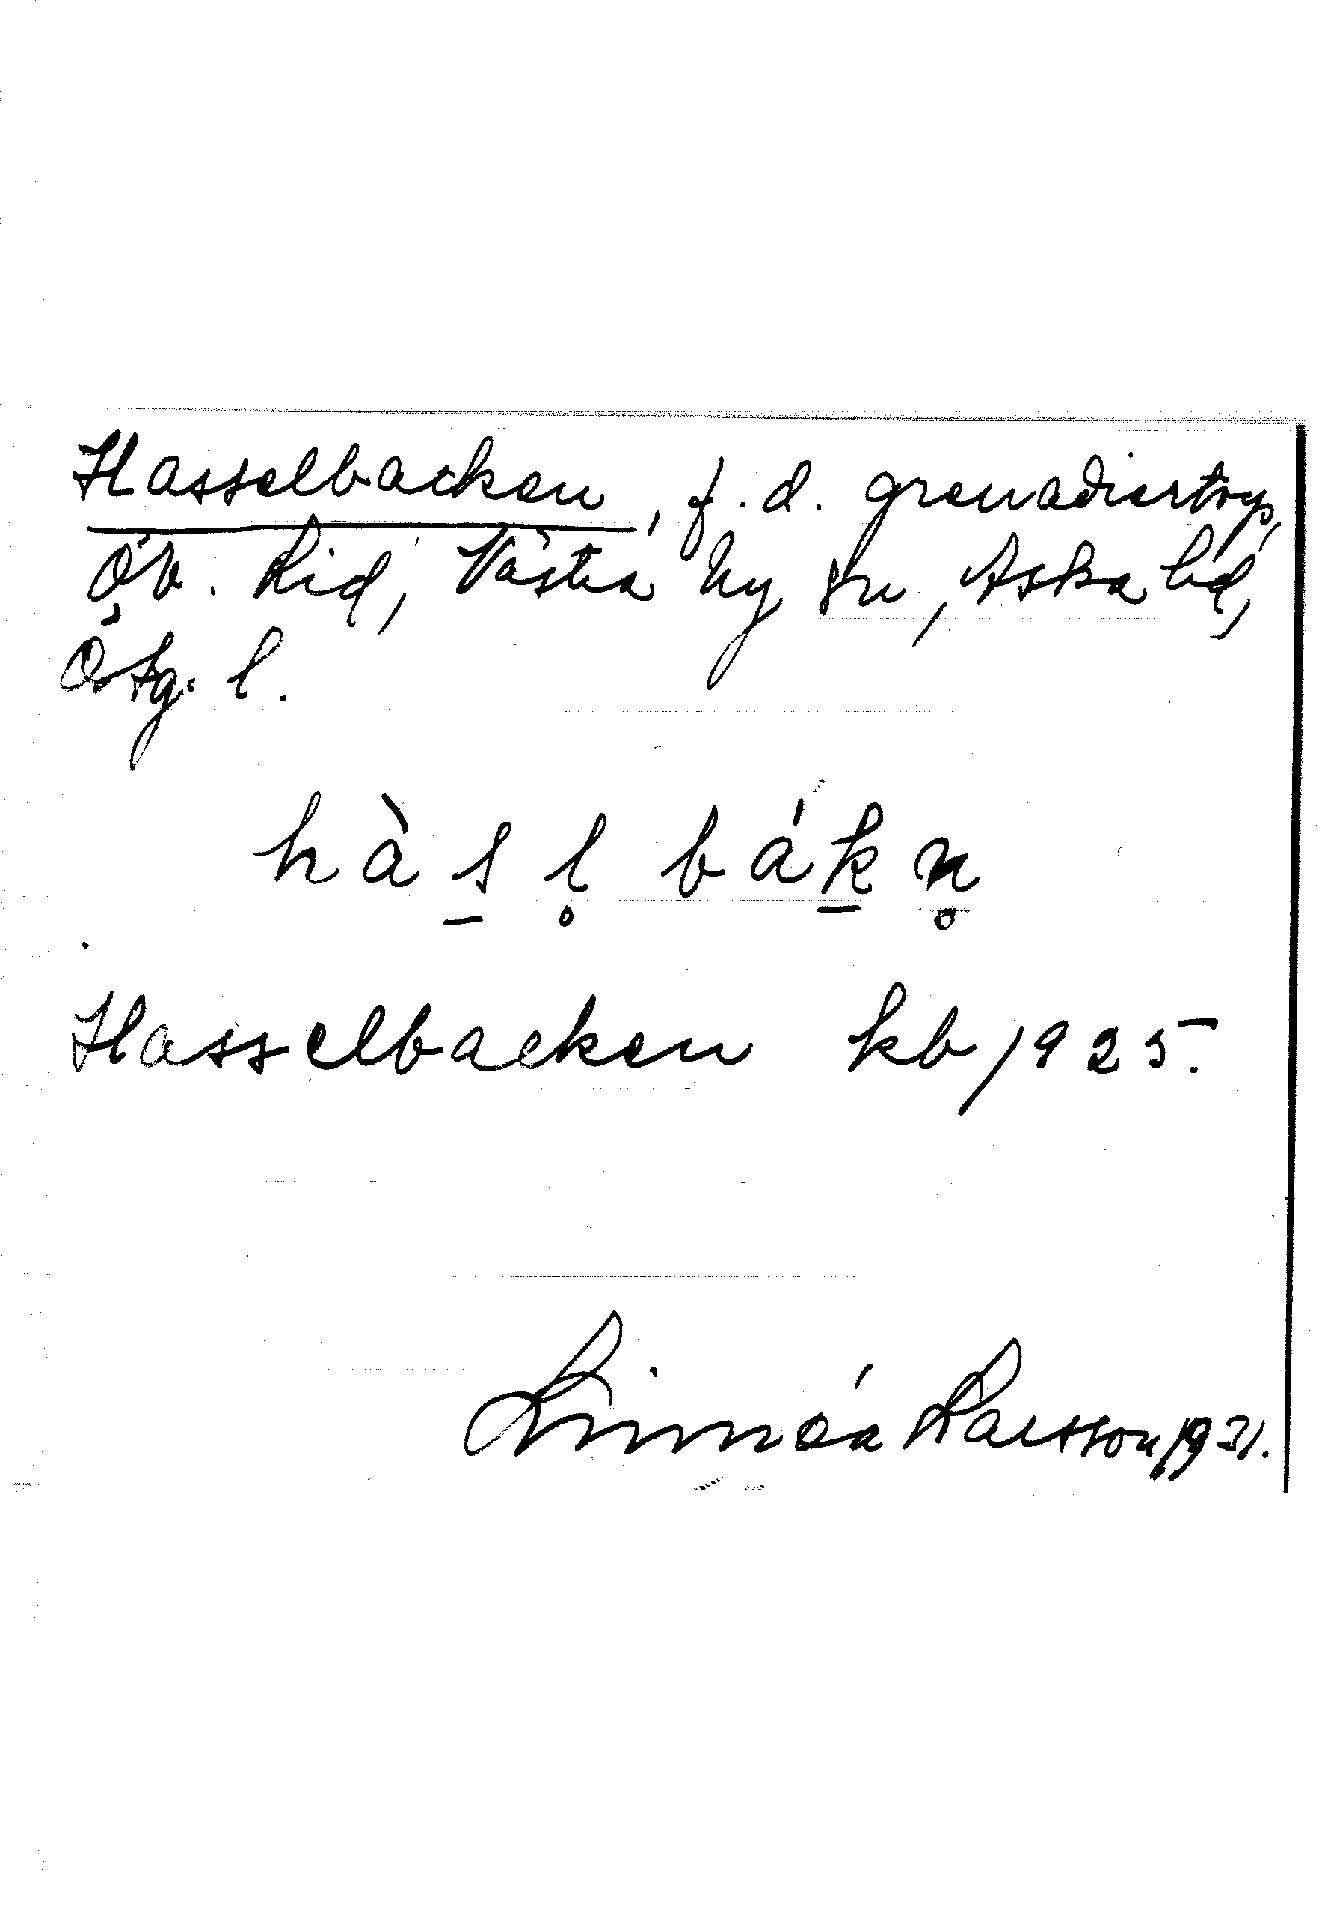 Hasselbacken, f.d. grenadiertorp,
Öv. Lid, Västra Ny sn, Aska hd,
Östg. l.
hàs̲l̥bák̲n̥
Hasselbacken kb 1925.
Linnéa Larsson 1931.